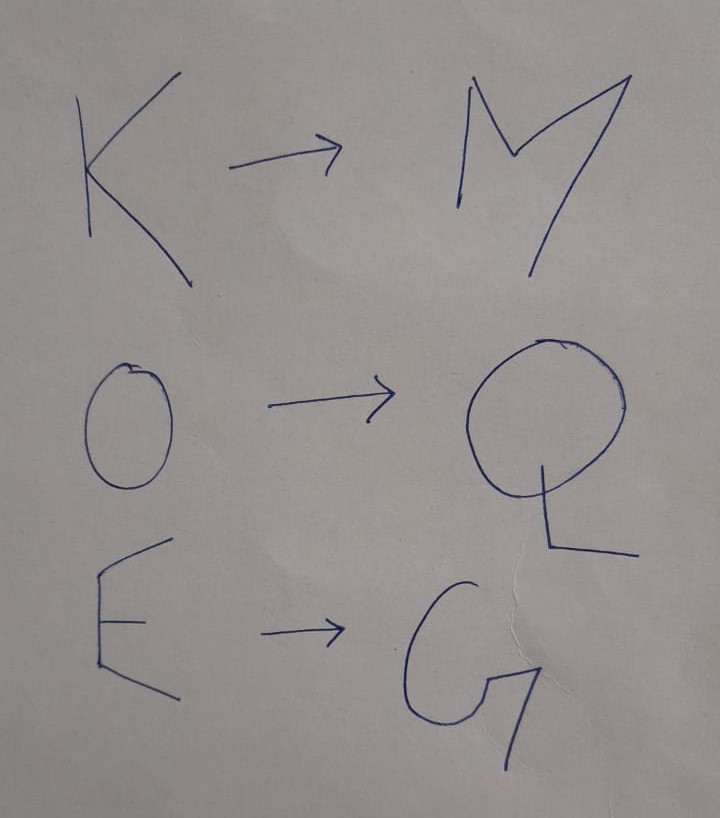 K → M
O → Q
E → G